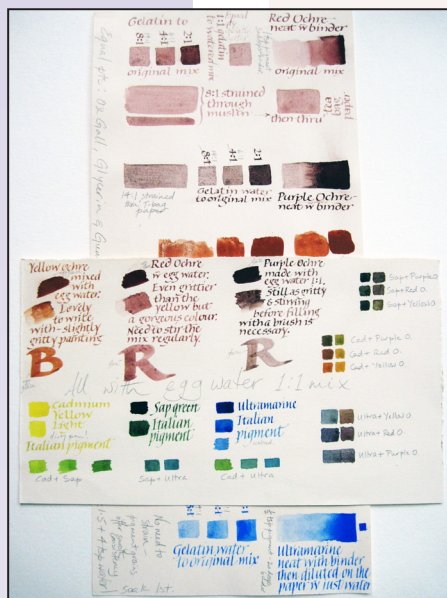 Gelatin to
8:1
4:1
2:1
original mix
1:1 gelatin
to watercolour mix
Red Ochre-
neat w binder
original mix
8:1 strained
through
muslin
then thru
tea bag
paper
Equal pts: Ox Gall, Glycerin & Gum
14:1 strained
thru' T-bag
paper
8:1
4:1
2:1
Gelatin water
to original mix
Purple Ochre-
neat w binder
Yellow ochre
mixed
with
egg water.
Lovely
to write
with-slightly
gritty painting
B
Red Ochre
w egg water.
Even grittier
than the
yellow but
a gorgeous colour.
Need to stir the
mix regularly.
R
Purple Ochre
made with
egg water 1:1.
Still as gritty
& stirring
before filling
with a brush is
necessary.
R
Sap+Purple O.
Sap+Red O.
Sap+Yellow O.
Cad + Purple O.
Cad + Red O.
Cad + Yellow O.
All with egg water 1:1 mix
Cadmium
Yellow
Light
Italian pigment
Sap green
Italian
pigment
Ultramarine
Italian
pigment
Ultra+Yellow O.
Ultra+Red O.
Ultra+Purple O.
Cad + Sap
Sap + Ultra
Cad + Ultra
No need to
strain-
pigment grains
soak 1st.
Gelatin water
to original mix
Ultramarine
neat with binder,
then diluted on the
paper w just water